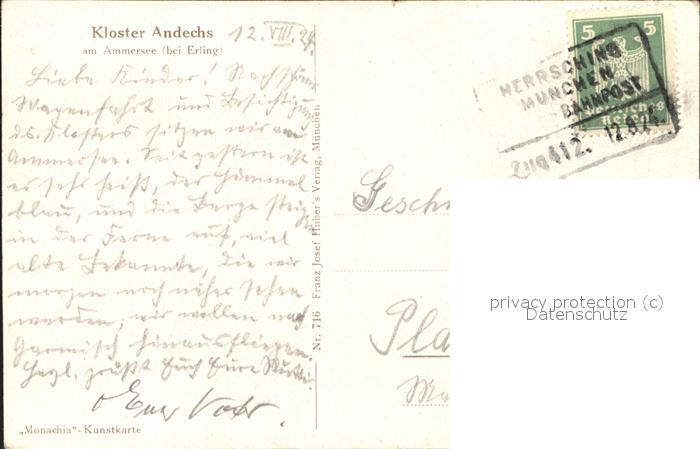 Kloster Andechs
am Ammersee (bei Erling)
12. VIII. 24.
Liebe Kinder! Nach schöner
Wagenfahrt und Besichtigung
ds. Klosters sitzen wir am
Ammersee. Seit gestern ist
es sehr heiß, der Himmel
blau, und die Berge steigen
in der Ferne auf, viel
alte Bekannte, die wir
morgen noch näher sehen
werden; wir wollen nach
Garmisch hinausfliegen.
Herzl. grüßt Euch Eure Mutti.
Euer Vater.
„Monachia"-Kunstkarte
Nr. 716 Franz Josef Huber's Verlag, München
5 5
Deutsches
Reich
HERRSCHING
MÜNCHEN
BAHNPOST
Zug 412. 12.8.24
Gesch
Pla
privacy protection (c)
Datenschutz